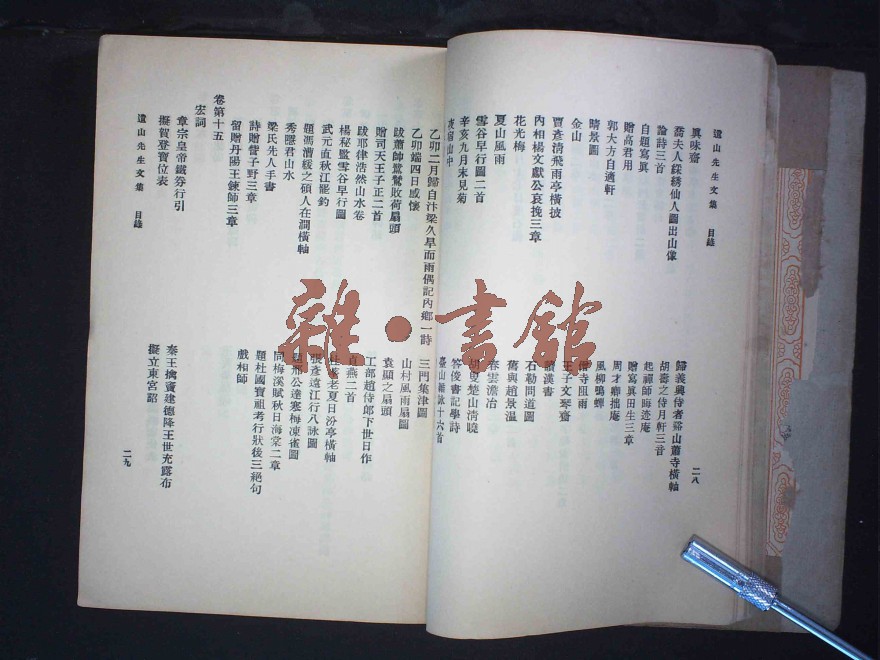 遺山先生文集 目錄
二八
異味齋
喬夫人綵綉仙人圖出山像
論詩三首
自題寫眞
贈高君用
郭大方自適軒
晴景圖
金山
賈彥清飛雨亭橫披
內相楊文獻公哀挽三章
花光梅
夏山風雨
雪谷早行圖二首
辛亥九月末見菊
夜宿山中
歸義興侍者谿山蕭寺橫軸
胡壽之侍月軒三首
起禪師晦迹庵
贈寫眞田生三章
周才卿拙庵
風柳鳴蟬
僧寺阻雨
王子文琴齋
讀漢書
石勒問道圖
舊與趙景溫
春雲澹冶
胡叟楚山清曉
答俊書記學詩
臺山雜詠十六首
乙卯二月歸自汴梁久旱而雨偶記內鄉一詩
乙卯端四日感懷
跋蕭師鴛鴦敗荷扇頭
贈司天王子正二首
跋耶律浩然山水卷
楊秘監雪谷早行圖
武元直秋江罷釣
題馮漕綬之碩人在澗橫軸
秀隱君山水
梁氏先人手書
詩贈訾子野三章
留贈丹陽王鍊師三章
三門集津圖
山村風雨扇頭
袁顯之扇頭
工部趙侍郎下世日作
貞燕二首
杜生老夏日汾亭橫軸
張彥遠江行八詠圖
題邢公達寒梅凍雀圖
同梅溪賦秋日海棠二章
題杜國寶祖考行狀後三絕句
戲相師
卷第十五
宏詞
章宗皇帝鐵券行引
擬賀登寶位表
秦王擒竇建德降王世充露布
擬立東宮詔
遺山先生文集 目錄
二九
雜·書館